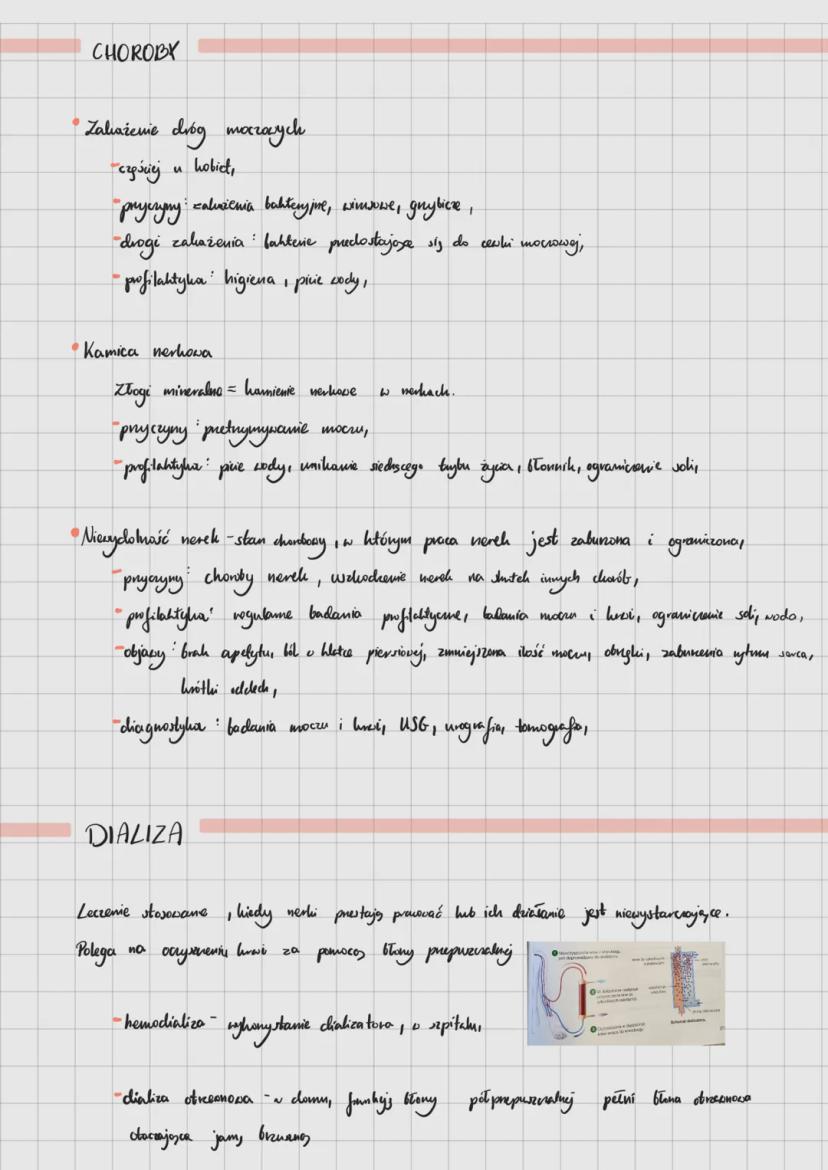 CHOROBY
Zakażenie dróg moczowych
- częściej u kobiet,
- przyczyny: zakażenia bakteryjne, wirusowe, grzybicze,
- drogi zakażenia: bakterie przedostające się do cewki moczowej,
- profilaktyka: higiena, picie wody,
Kamica nerkowa
Złogi mineralne = kamienie nerkowe w nerkach.
- przyczyny: przetrzymywanie moczu,
- profilaktyka: picie wody, unikanie siedzącego trybu życia, błonnik, ograniczenie soli,
Niewydolność nerek - stan chorobowy, w którym praca nerek jest zaburzona i ograniczona,
- przyczyny: choroby nerek, uszkodzenie nerek na skutek innych chorób,
- profilaktyka: regularne badania profilaktyczne, badania moczu i krwi, ograniczenie soli, woda,
- objawy: brak apetytu, ból w klatce piersiowej, zmniejszona ilość moczu, obrzęki, zaburzenia rytmu serca,
krótki oddech,
- diagnostyka: badania moczu i krwi, USG, urografia, tomografia,
DIALIZA
Leczenie stosowane, kiedy nerki przestają pracować lub ich działanie jest niewystarczające.
Polega na oczyszczeniu krwi za pomocą błony przepuszczalnej
- hemodializa - wykorzystanie dializatora, w szpitalu,
- dializa otrzewnowa - w domu, funkcję błony półprzepuszczalnej pełni błona otrzewnowa
otaczająca jamę brzuszną